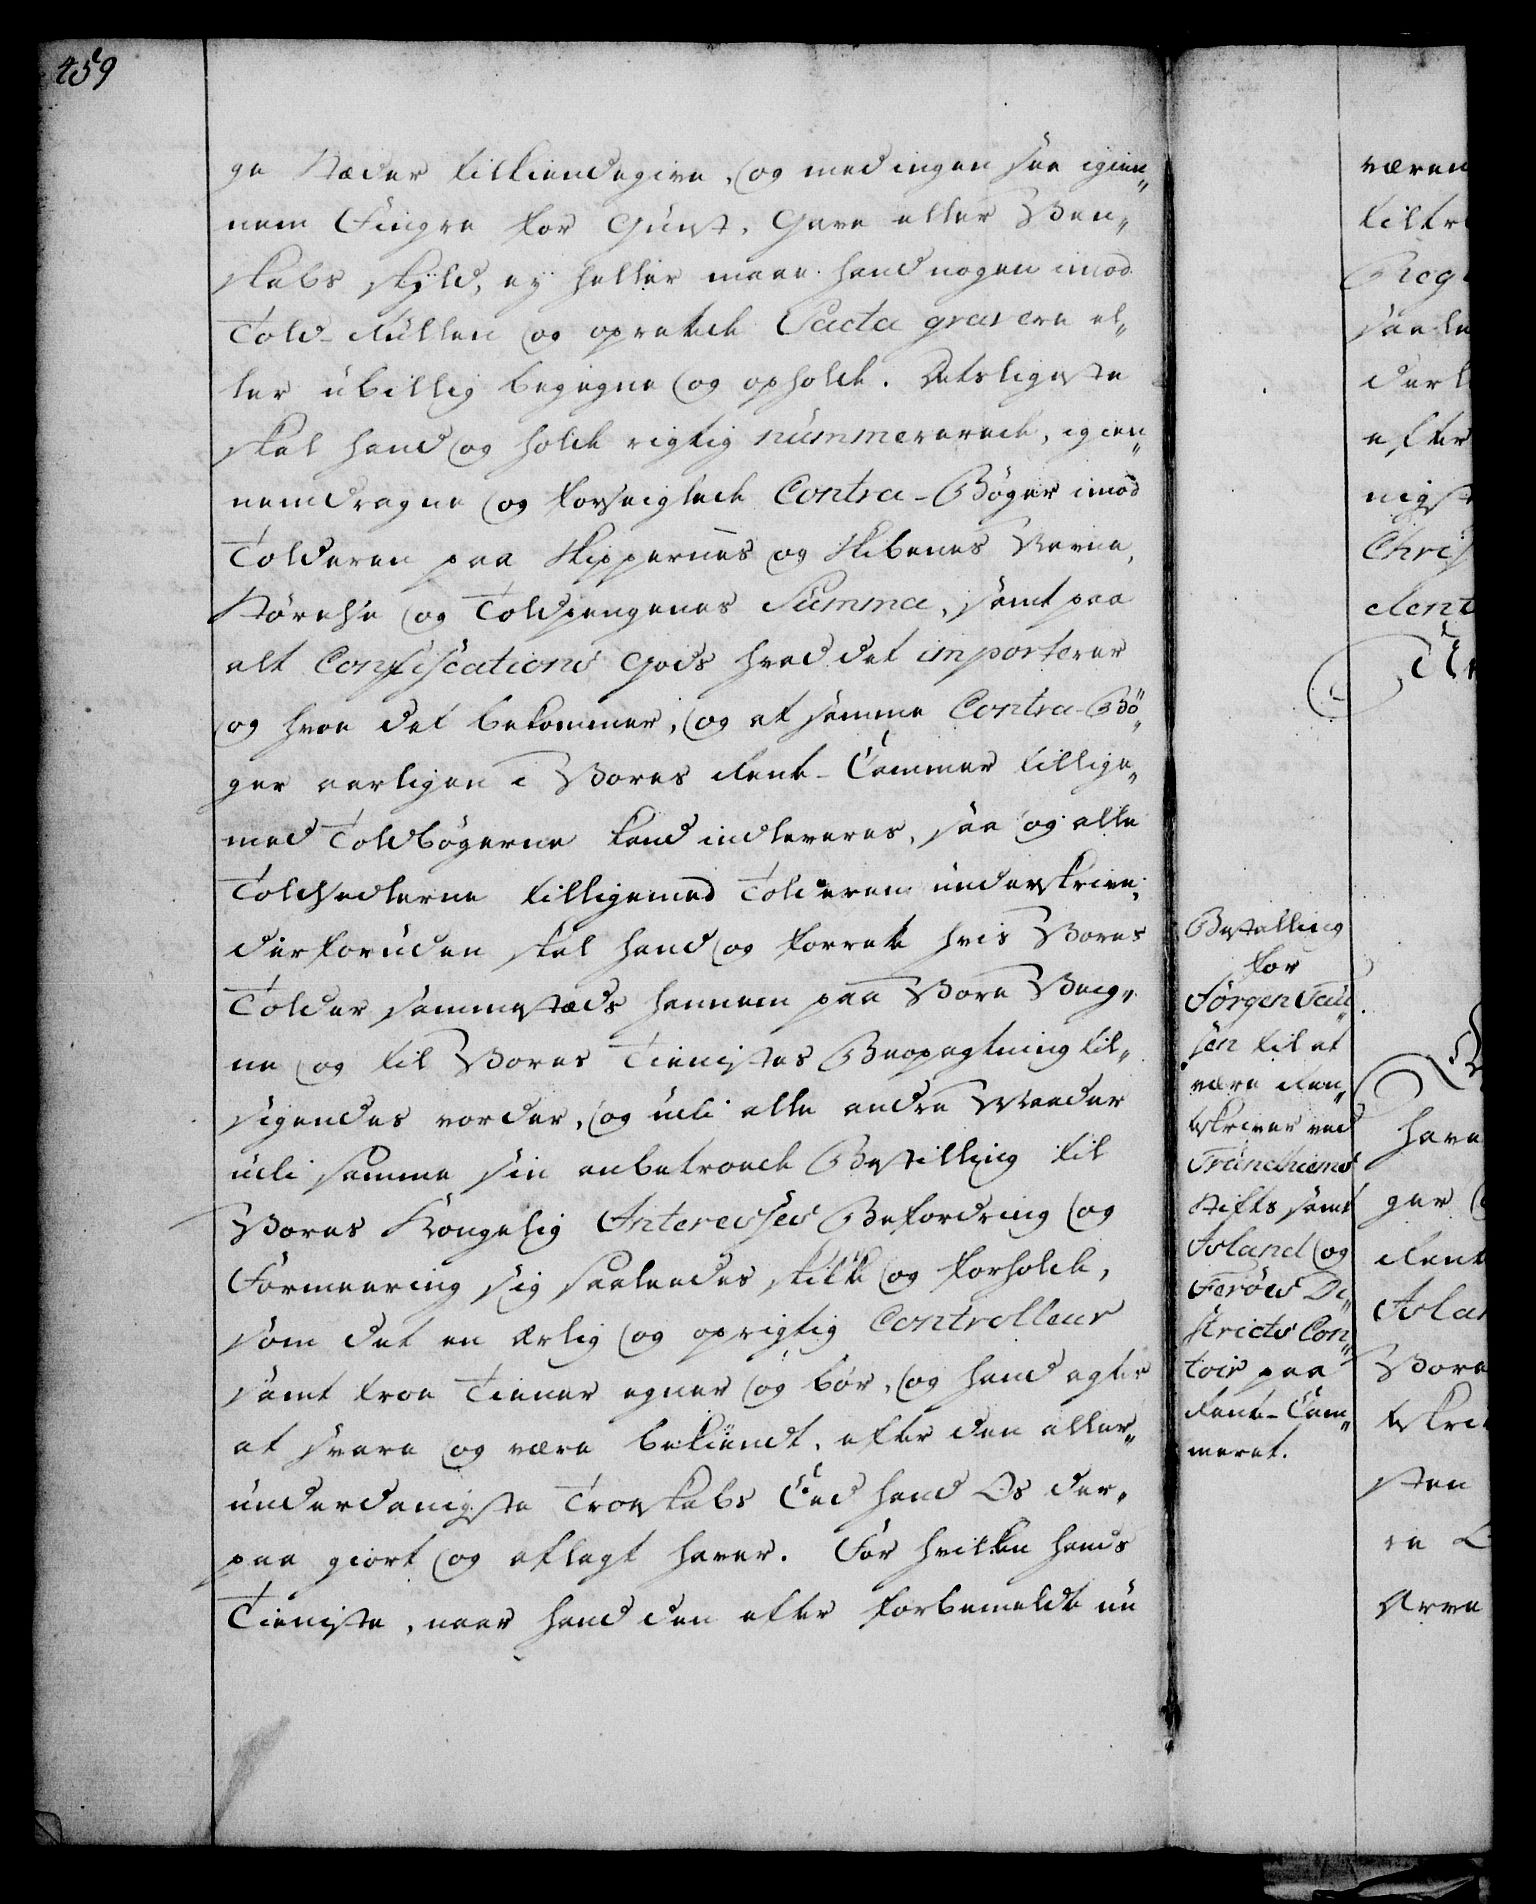 459
ge Stæder tilkiendegive, og med ingen see igien„
nem Fingre for Gunst, Gave eller Ven„
skabs skyld, ey heller maae hand nogen imod
Told-Rullen og oprettede Pacta gravere el„
ler ubillig begegne og opholde. Desligeste
skal hand og holde rigtig nummererede, igien„
nemdragne og forseiglede Contra-Bøger imod
Tolderen paa Skippernes og Skibenes Navne,
Størelse og Toldpengenes Summa, samt paa
alt Confiscations Gods hvad det importerer
og hvoe det bekommer, og at samme Contra-Bø„
ger aarligen i Vores Rente-Cammer tillige„
med Toldbøgerne kand indleveres, saa og alle
Toldsedlerne tilligemed Tolderen underskrive,
derforuden skal hand og forrette hvis Vores
Tolder sammestæds hannem paa Vore Veig„
ne og til Vores Tienistes Beopagtning til„
sigendes vorder, og udi alle andre Maader
udi samme sin anbetroede Bestilling til
Vores Kongelig Interesses Befordring og
Formeering sig saaledes skikke og forholde,
som det en ærlig og oprigtig Controlleur
samt troe Tiener egner og bør, og hand agter
at svare og være bekiendt, efter den aller„
underdanigste Troeskabs Eed hand Os der„
paa giort og aflagt haver. For hvilken hands
Tieniste, naar hand den efter forbemeldte nu
Bestalling
for
Jørgen Pau„
sen til at
være Ren„
skriver ved
Trundhiems
Stifts samt
Island og
Ferøes Di„
stricts Con„
toir paa
Rente-Cam„
meret.
væren
tiltr
Reg
saale
derl
efter
nigst
Chris
dent
have
ger
Rente
Islan
Vore
skri
sten
re
Arve